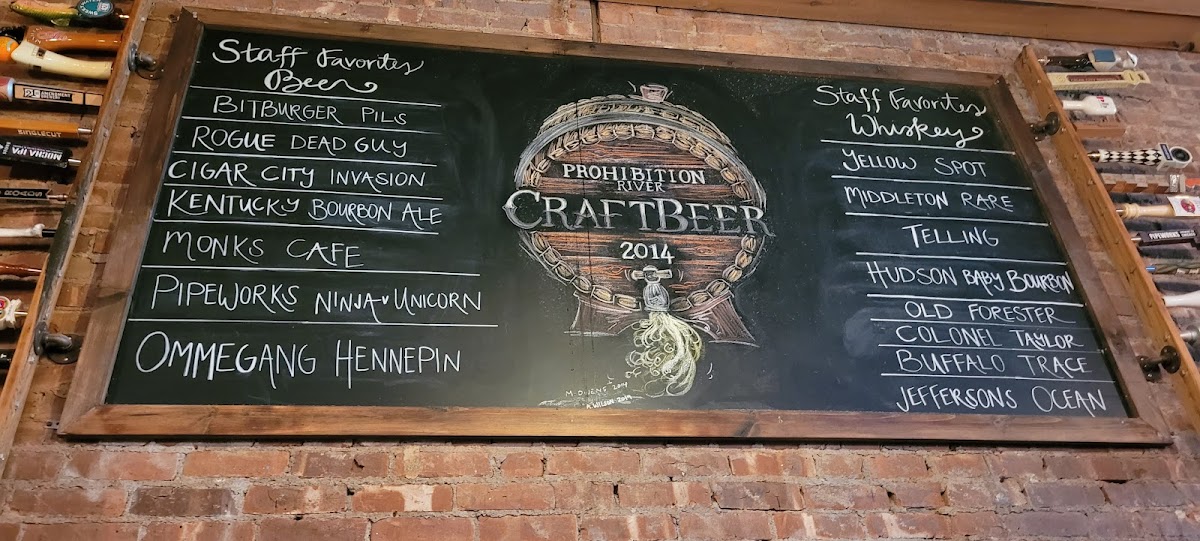 Staff Favorites
Beer
BITBURGER PILS
ROGUE DEAD GUY
CIGAR CITY INVASION
KENTUCKY BOURBON ALE
MONKS CAFE
PIPEWORKS NINJA V UNICORN
OMMEGANG HENNEPIN
PROHIBITION
RIVER
CRAFTBEER
2014
M. OWENS 2014
Staff Favorites
Whiskey
YELLOW SPOT
MIDDLETON RARE
TELLING
HUDSON BABY BOURBON
OLD FORESTER
COLONEL TAYLOR
BUFFALO TRACE
JEFFERSONS OCEAN
SINGLECUT
MOCHA IPA
ROADS
PIPEWORKS